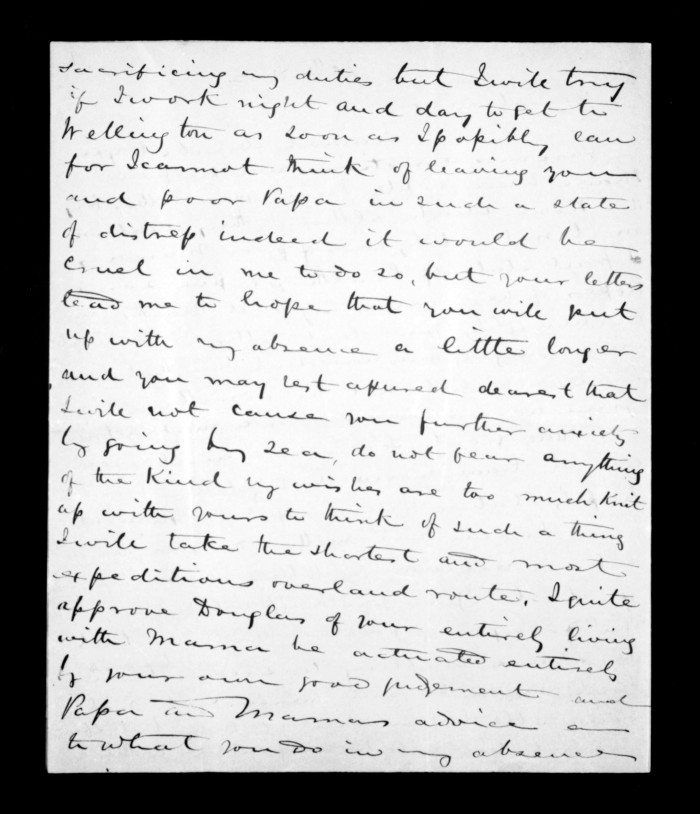 sacrificing my duties but I will try
if I work night and day to get to
Wellington as soon as I possibly can
for I cannot think of leaving you
and poor Papa in such a state
of distress indeed it would be
cruel in me to do so, but your letters
lead me to hope that you will put
up with my absence a little longer
and you may rest assured dearest that
I will not cause you further anxiety
by going by sea, do not fear anything
of the kind my wishes are too much knit
up with yours to think of such a thing
I will take the shortest and most
expeditious overland route. I quite
approve Douglas of your entirely living
with Mama be actuated entirely
by your own good judgement and
Papa and Mamas advice as
to what you do in my absence